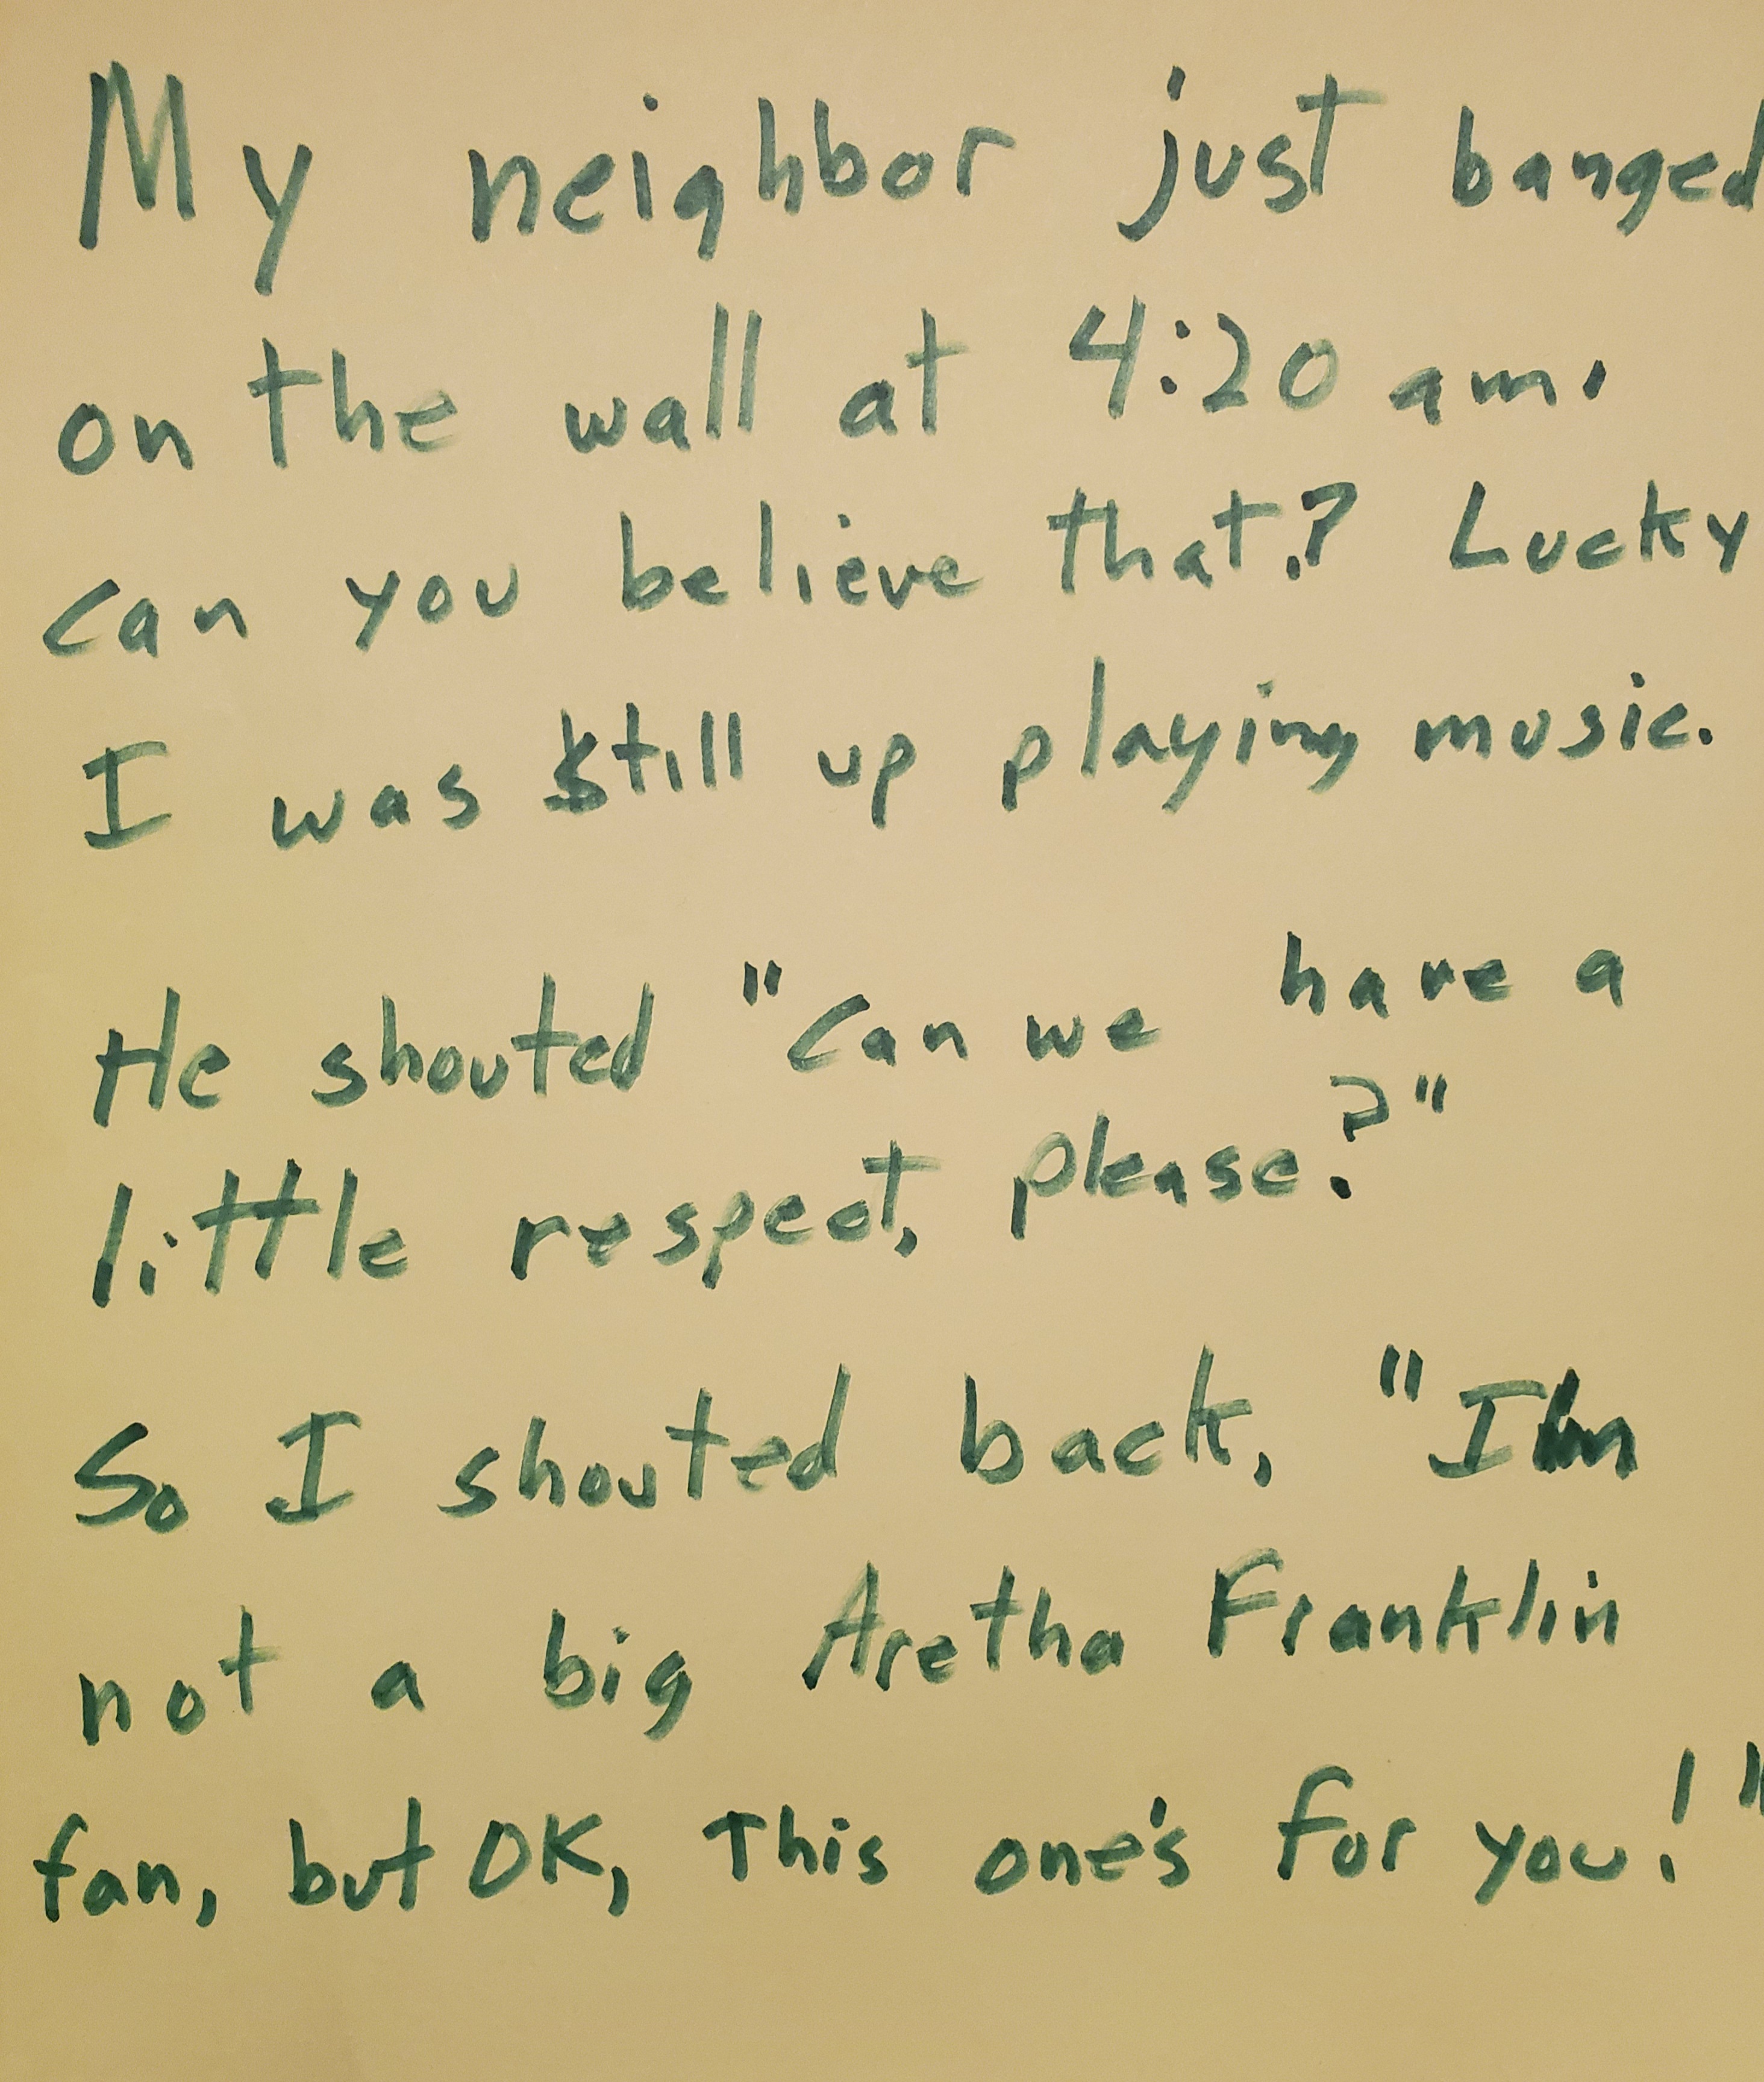 My neighbor just banged
on the wall at 4:20 am.
can you believe that? Lucky
I was still up playing music.
He shouted "Can we have a
little respect, please?"
So I shouted back, "I'm
not a big Aretha Franklin
fan, but OK, This one's for you!"